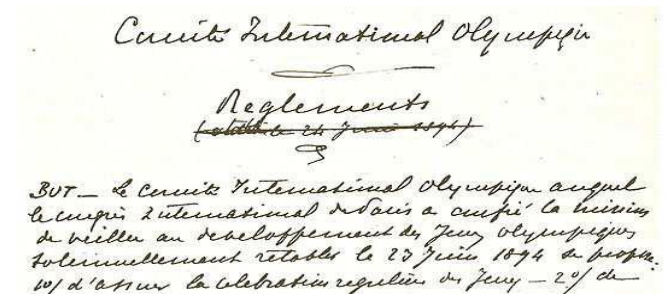 Comité International Olympique
Reglements
(etabli le 24 Juin 1894)
BUT _ Le Comité International Olympique auquel
le congrès International de Paris a confié la mission
de veiller au developpement des Jeux olympiques
solennellement rétablis le 23 Juin 1894 se propose:
1o/ d'assurer la celebration regulière des Jeux _ 2o/ de